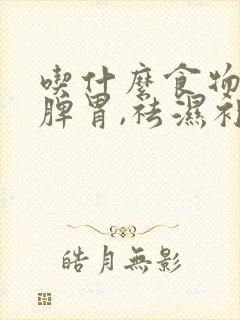 喫什麼食物
脾胃,祛濕補
皓月無影